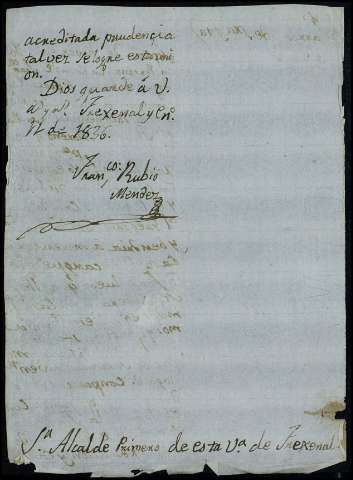 acreditada prudencia
tal vez se logre estermi
nion.
Dios guarde á V.
a.s y a.s Frexenal y En.o
de 1836.
Fran.co Rubio
Mendez
S.r Alcalde Primero de esta V.a de Frexenal.